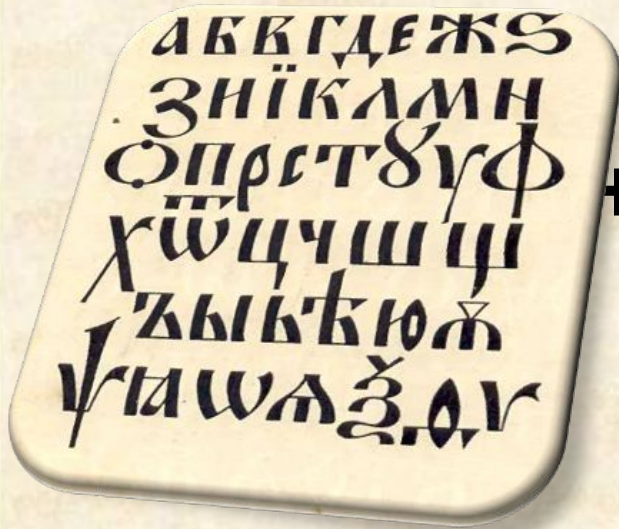 АБВГДЕЖЅ
ЗНЇКЛМН
ѺПРСТꙊѴФ
ХѾЦЧШЩ
ЪЫЬѢЮѪ
ѰꙖѠѦѮѲѴ
+